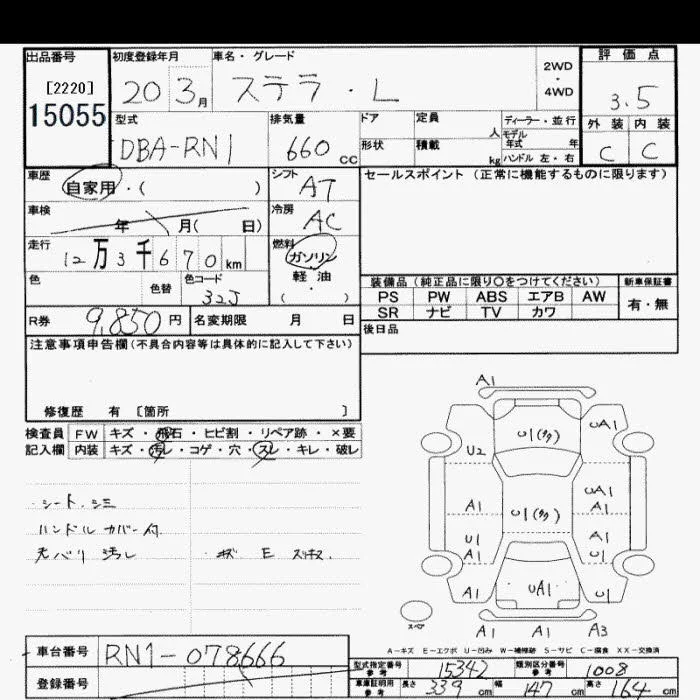 出品番号
[2220]
15055
初度登録年月
20 3月
車名・グレード
ステラ・L
2WD
・
4WD
評価点
3.5
外装 内装
C C
型式
DBA-RN1
排気量
660 CC
ドア
形状
定員 人
積載 kg
ディーラー・並行
モデル年式 年
ハンドル 左・右
車歴
自家用・( )
シフト
AT
車検
年 月( 日)
冷房
AC
走行
12万3千670km
燃料
ガソリン
軽・油
( ・ )
色
色替
色コード
32J
R券 9,850円
名変期限 月 日
セールスポイント(正常に機能するものに限ります)
装備品(純正品に限り○をつけてください)
PS PW ABS エアB AW
SR ナビ TV カワ
新車保証書
有・無
後日品
注意事項申告欄(不具合内容等は具体的に記入して下さい)
修復歴 有 〔箇所 〕
検査員
記入欄
FW キズ・飛石・ヒビ割・リペア跡・×要
内装 キズ・汚レ・コゲ・穴・スレ・キレ・破レ
・シート、シミ
ハンドルカバー付
天バリ 汚レ
A1
U1(多)
UA1
U2
UA1
A1
A1
U1(多)
U1
A1
A1
U1
A1
UA1
U1
A1 A1 A3
スペア
A-キズ E-エクボ U-凹み W-補修跡 S-サビ C-腐食 XX-交換済
車台番号 RN1-078666
登録番号
型式指定番号
参考
15342
類別区分番号
参考
1008
車庫証明用
参考
長さ 339 cm 幅 147 cm 高さ 164 cm